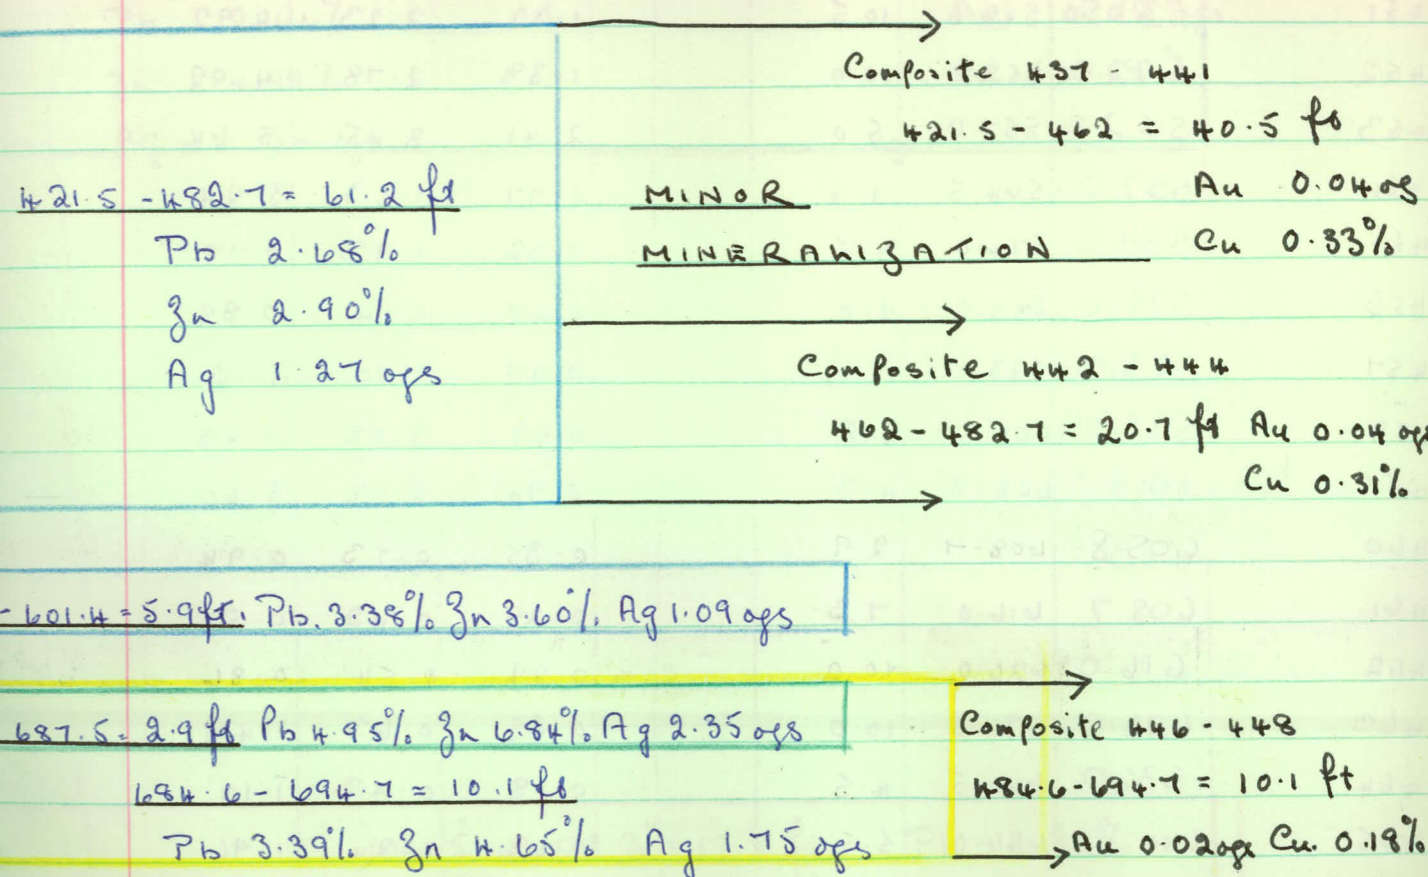 Composite 437 - 441
421.5 - 462 = 40.5 ft
Au 0.04 ozs
Cu 0.33%
421.5 - 482.7 = 61.2 ft
Pb 2.68%
Zn 2.90%
Ag 1.27 ozs
MINOR
MINERALIZATION
Composite 442 - 444
462 - 482.7 = 20.7 ft Au 0.04 ozs
Cu 0.31%
- 601.4 = 5.9 ft. Pb. 3.38% Zn 3.60% Ag 1.09 ozs
687.5 = 2.9 ft Pb 4.95% Zn 6.84% Ag 2.35 ozs
684.6 - 694.7 = 10.1 ft
Pb 3.39% Zn 4.65% Ag 1.75 ozs
Composite 446 - 448
484.6 - 694.7 = 10.1 ft
Au 0.02 ozs Cu. 0.18%